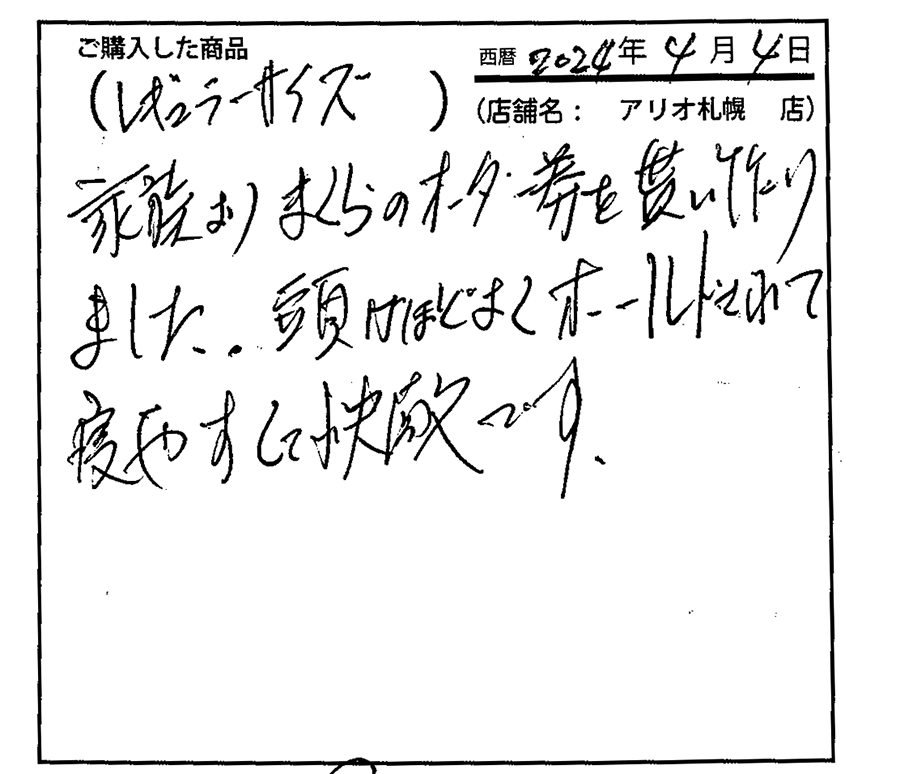 ご購入した商品
西暦 2024年 4月 4日
(レギュラーサイズ )
(店舗名： アリオ札幌 店)
家族より まくらのオーダー券を貰い作り
ました。頭はほどよくホールドされて
寝やすくて快適です。